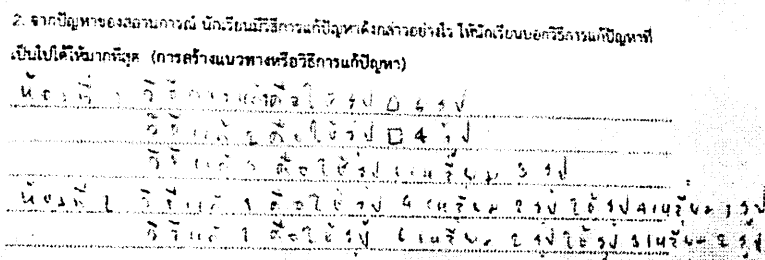 2. จากปัญหาของสถานการณ์ นักเรียนมีวิธีการแก้ปัญหาดังกล่าวอย่างไร ให้นักเรียนบอกวิธีการแก้ปัญหาที่
เป็นไปได้ให้มากที่สุด (การสร้างแนวทางหรือวิธีการแก้ปัญหา)
ห้องที่ 1 วิธีการแก้คือใช้รูป
วิธีแก้ 2 คือใช้รูป □ 4 รูป
วิธีแก้ 3 คือใช้รูป เหลี่ยม 3 รูป
ห้องที่ 2 วิธีแก้ 1 คือใช้รูป เหลี่ยม 2 รูป ใช้รูป 4 เหลี่ยม รูป
วิธีแก้ คือใช้รูป 6 เหลี่ยม 2 รูป ใช้รูป 3 เหลี่ยม 2 รูป